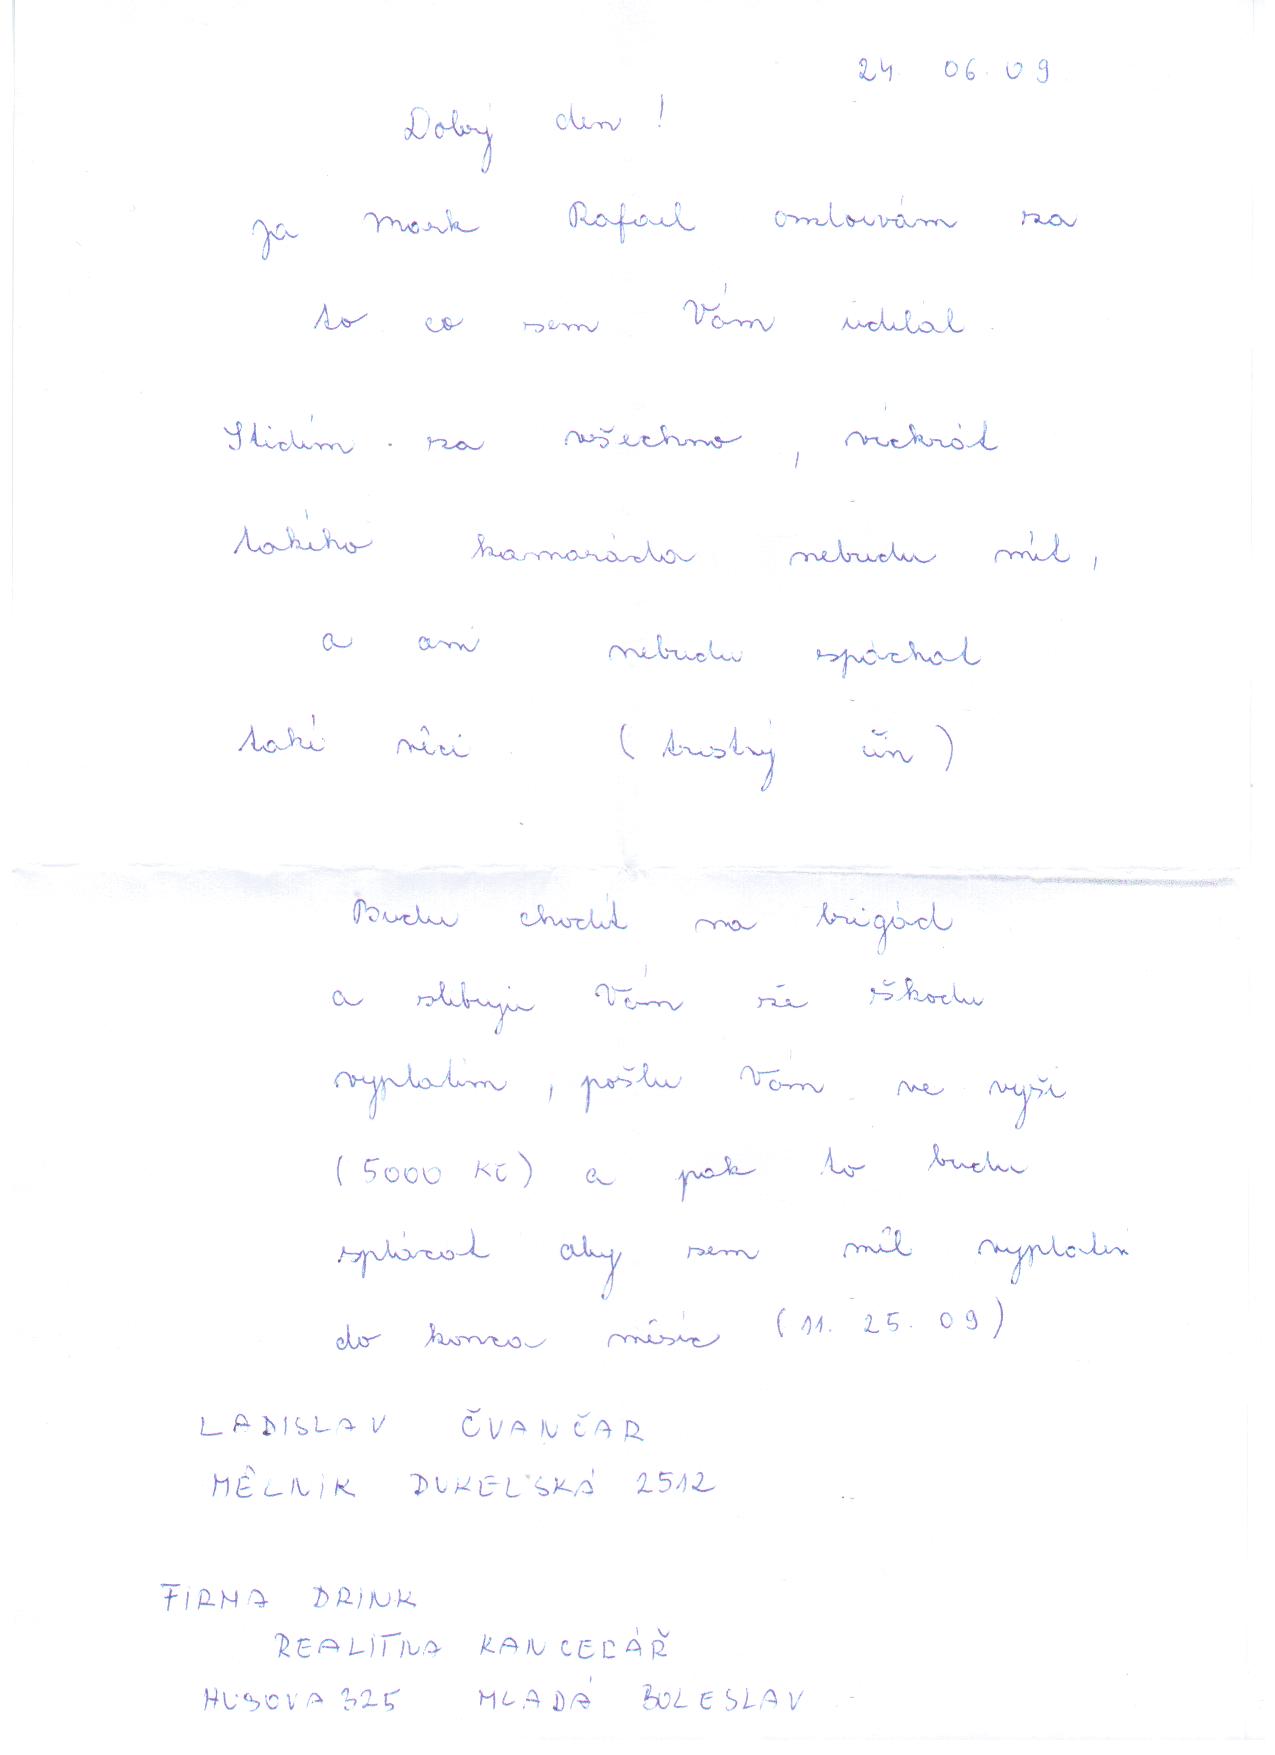 24. 06. 09
Dobrý den !
ja Mark Rafael omlouvám za
to co sem Vám udělal.
Stidím za všechno, víckrát
takího kamaráda nebudu mít,
a ani nebudu spáchat
také věci (trustný čin)
Budu chodit na brigád
a slibuji Vám že škodu
vyplatim, pošlu Vám ve vyši
(5000 Kč) a pak to budu
splácat aby sem měl vyplatin
do konca měsíc (11. 25. 09)
LADISLAV ČVANČAR
MĚLNIK DUKELSKÁ 2512
FIRMA DRINK
REALITNA KANCELÁŘ
HUSOVA 325 MLADÁ BOLESLAV